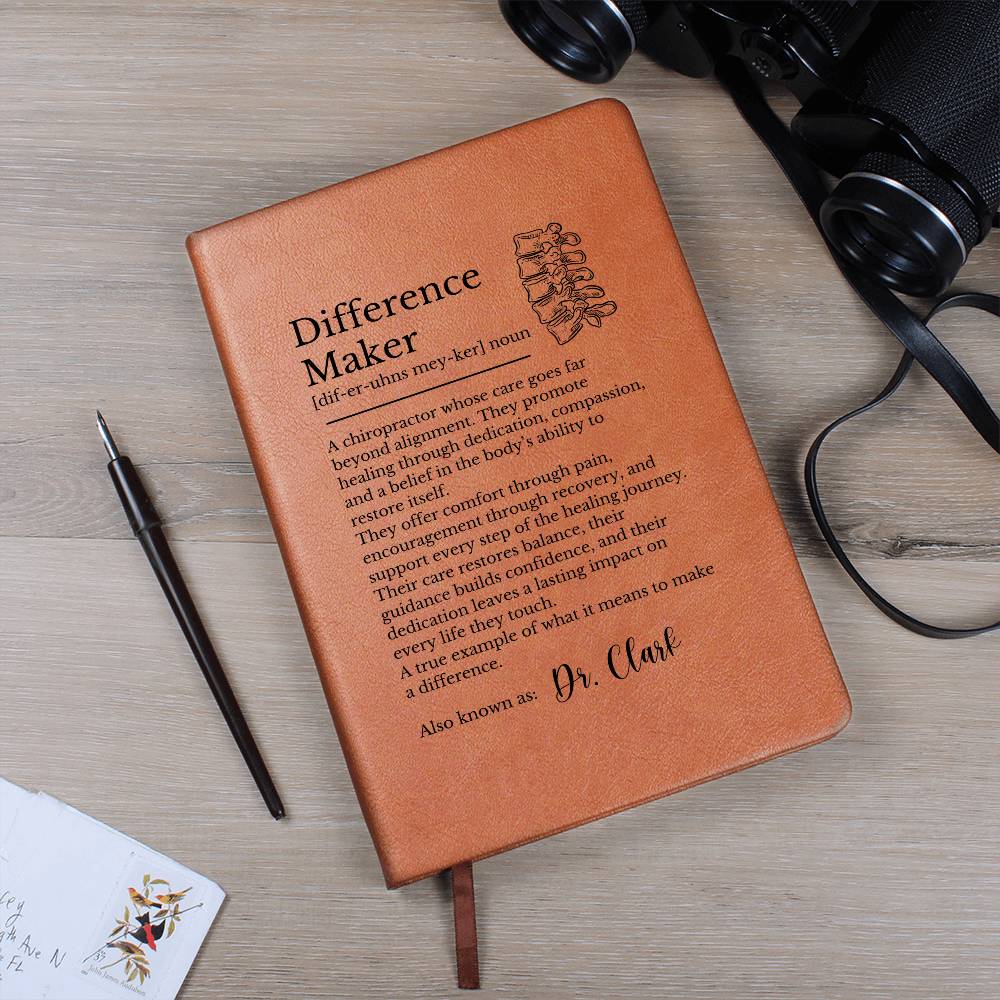 Difference
Maker
[dif-er-uhns mey-ker] noun
A chiropractor whose care goes far
beyond alignment. They promote
healing through dedication, compassion,
and a belief in the body's ability to
restore itself.
They offer comfort through pain,
encouragement through recovery, and
support every step of the healing journey.
Their care restores balance, their
guidance builds confidence, and their
dedication leaves a lasting impact on
every life they touch.
A true example of what it means to make
a difference.
Also known as: Dr. Clark
Ave N
FL
37
John James Audubon